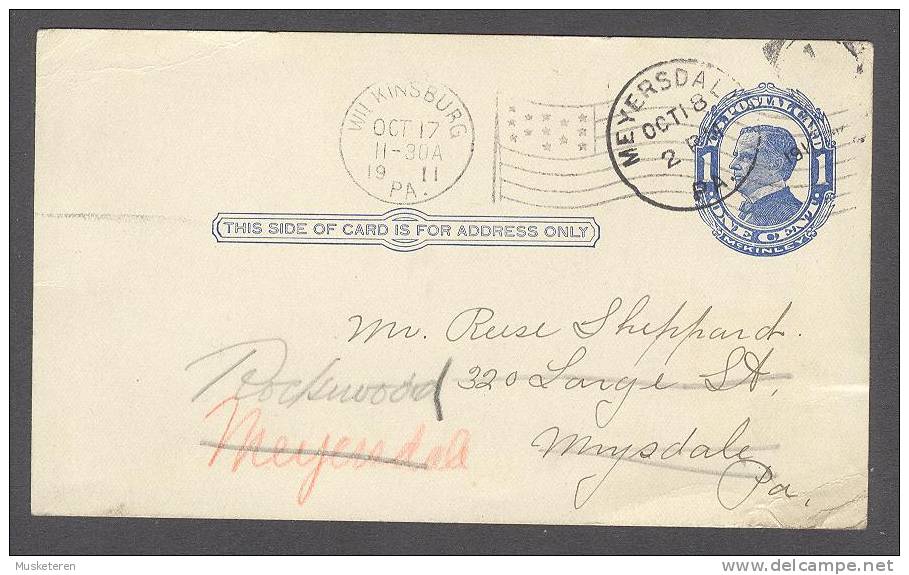 WILKINSBURG
OCT 17
11-30A
19 11
PA.
MEYERSDAL
OCT 18
2 P
191
PA.
U.S. POSTAL CARD
1 1
ONE CENT
McKINLEY
THIS SIDE OF CARD IS FOR ADDRESS ONLY
Mr. Reese Sheppard.
Rockwood 320 Large St,
Meyersdale
Mysdale
Pa.
Musketeren
delcampe.net